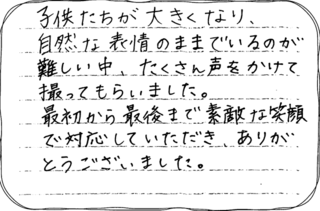 子供たちが大きくなり、
自然な表情のままでいるのが
難しい中、たくさん声をかけて
撮ってもらいました。
最初から最後まで素敵な笑顔
で対応していただき、ありが
とうございました。